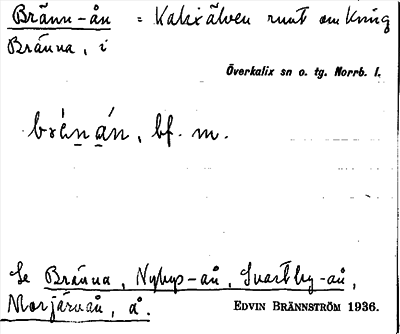 Bränn-ån = Kalixälven runt omkring
Bränna, i
Överkalix sn o. tg. Norrb. l.
brä́nán, bf. m.
Se Bränna, Nybyn-ån, Svartby-ån,
Morjärvån, å.
EDVIN BRÄNNSTRÖM 1936.